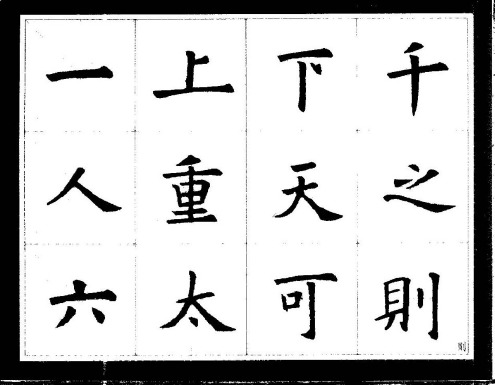 千之則
下天可
上重太
一人六